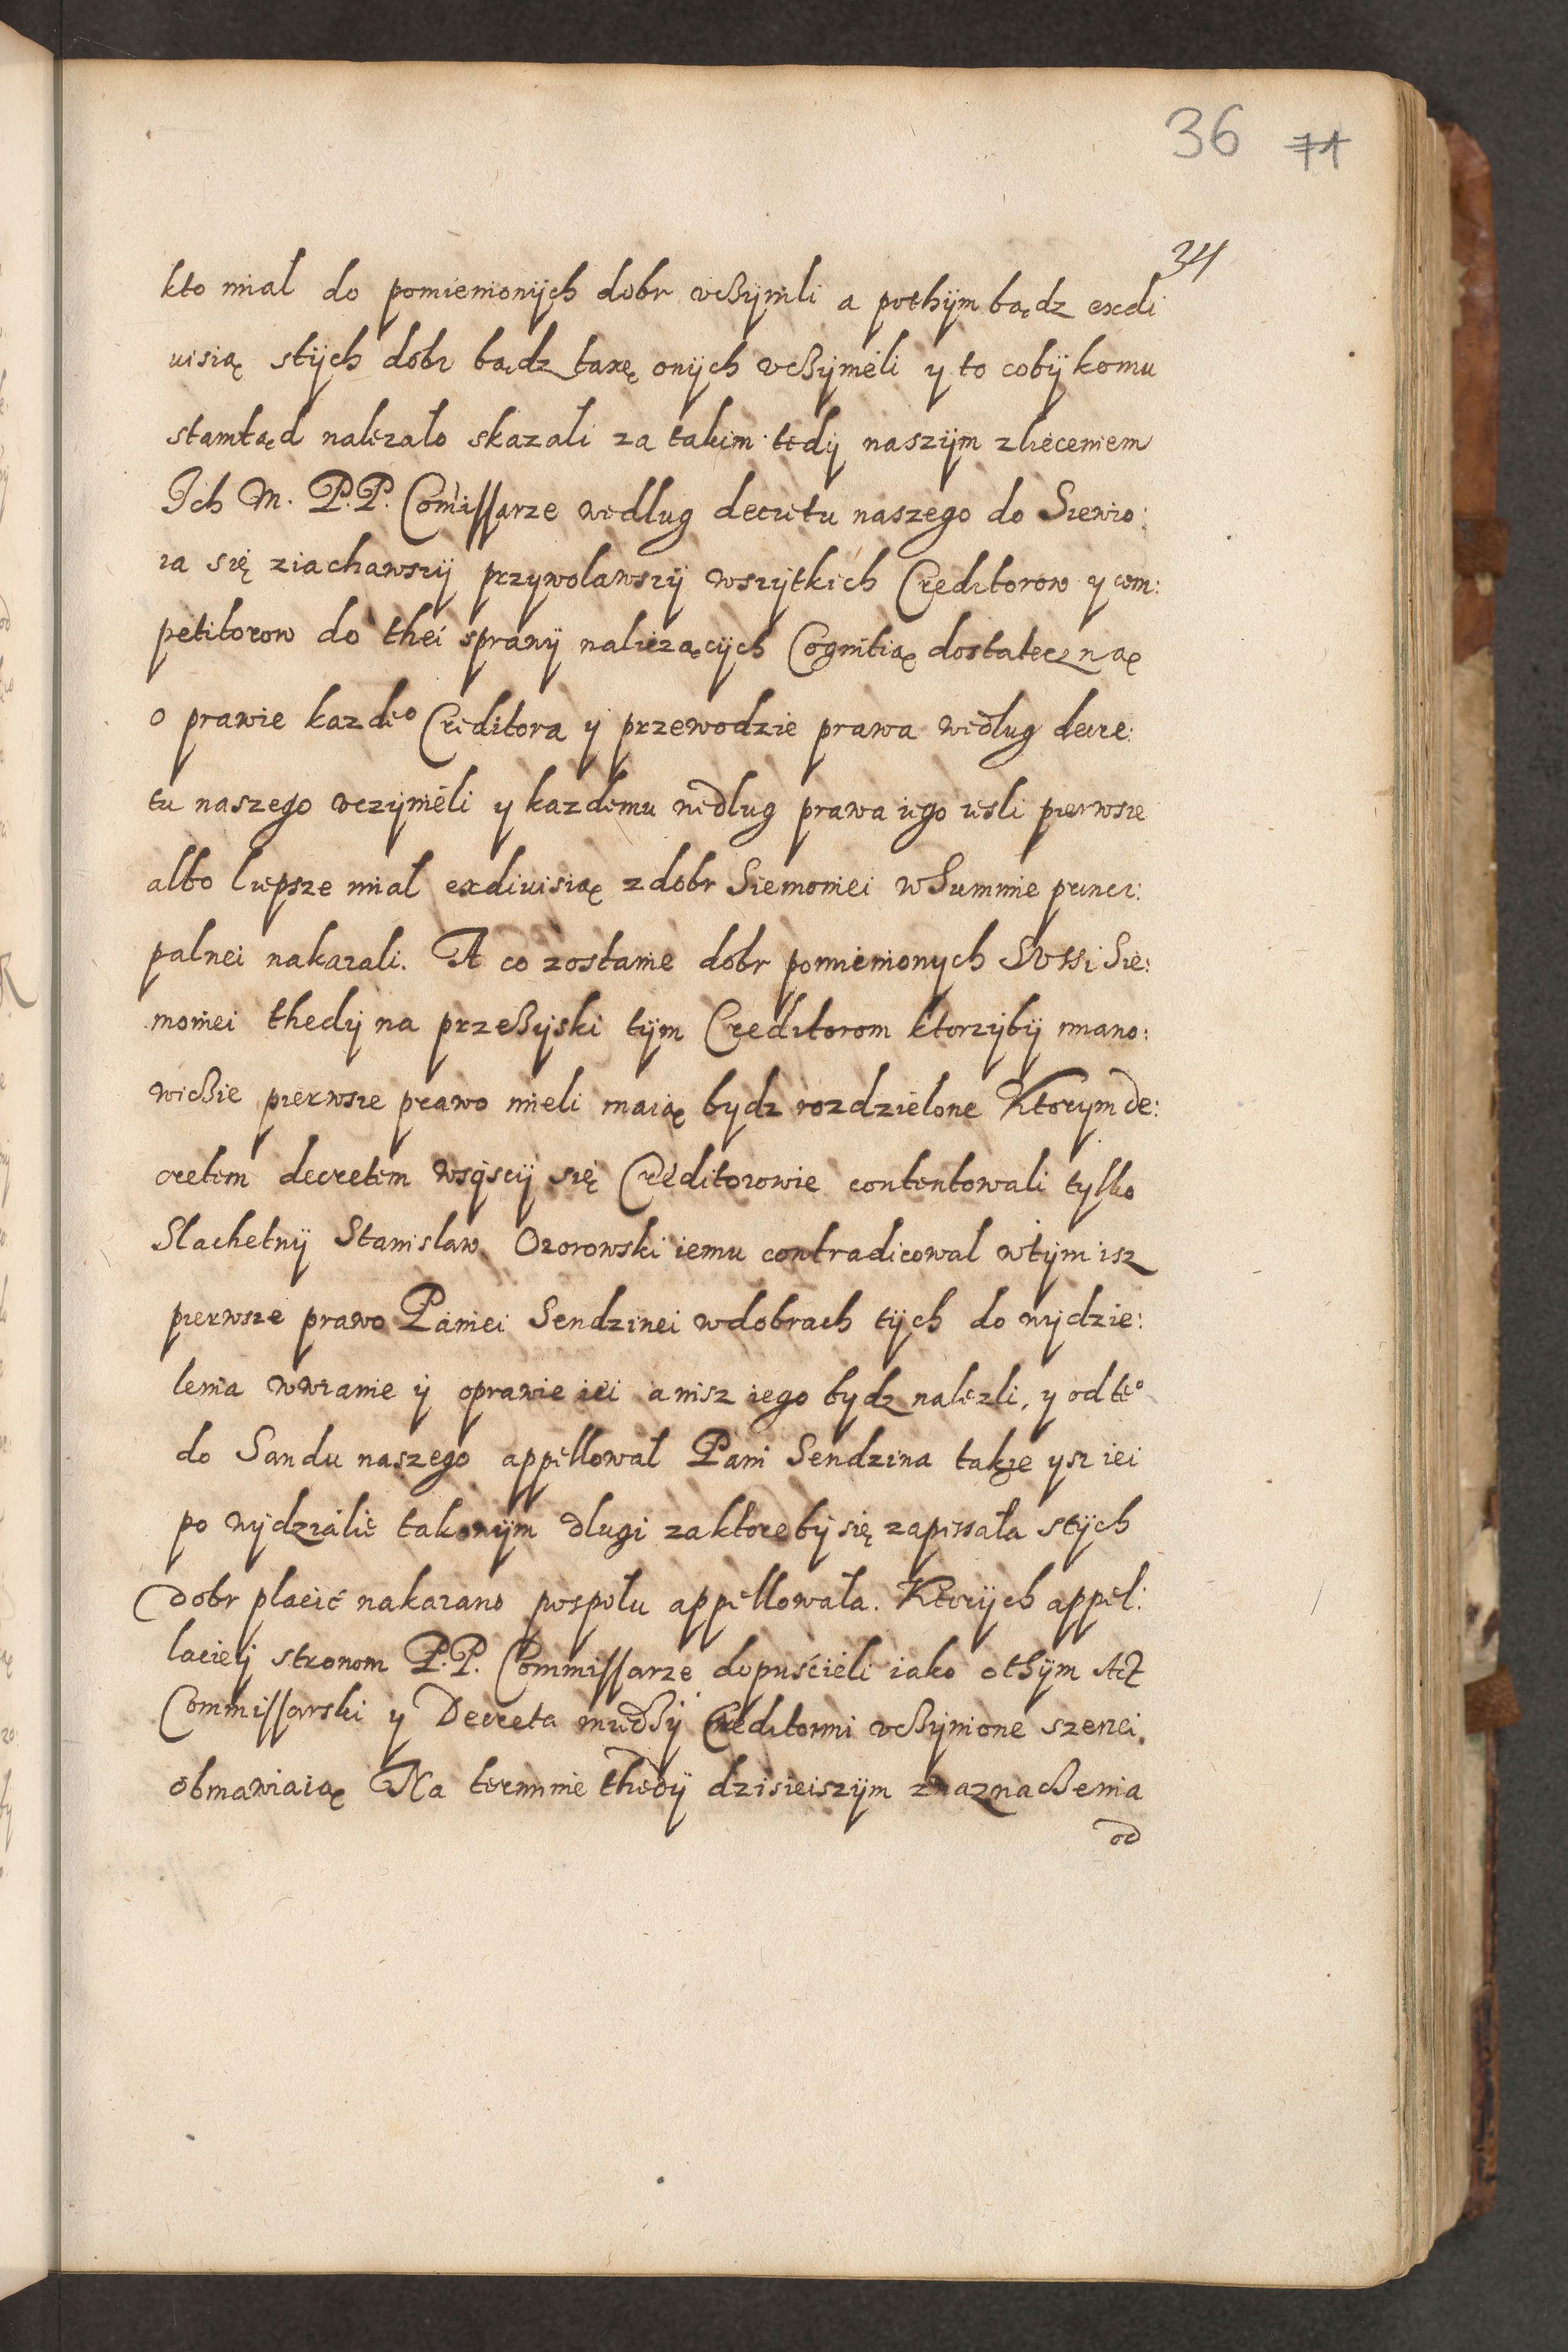 36 71
34
kto miał do pomienionÿch dobr vcżÿnili a pothÿm bądz exdi
uisią stÿch dobr bądz taxę onÿch vcżÿnieli y to cobÿ komu
stamtąd nalezało skazali za takim tedÿ naszÿm zlieceniem
Ich M. P.P. Comissarze według decretu naszego do Siewio:
ra się ziachawszÿ przywoławszÿ wszÿtkich Creditorow y com:
petitorow do thei sprawÿ nalieząçÿch Cognitią dostateczną
o prawie kazdeº Creditora ÿ przewodzie prawa według decre:
tu naszego vczÿnieli y kazdemu według prawa iego iesli pierwsze
albo liepsze miał exdiuisią z dobr Siemoniei w Summie princi:
palnei nakazali. A co zostanie dobr pomienionych Wssi Sie:
moniei thedÿ na przeżÿski tÿm Creditorom ktorzÿbÿ miano:
wicżie pierwsze prawo mieli maią bydz rozdzielone Ktorym de:
cretem decretem wsÿscÿ się Creditorowie contentowali tylko
Slachetnÿ Stanisław Ozorowski iemu contradicował wtÿm isz
pierwsze prawo Paniei Sendzinei w dobrach tÿch do wydzie:
lenia wwianie ÿ oprawie iei a nisz iego bydz nalezli, y od teº
do Sandu naszego appellował Pani Sendzina takze ysz iei
po wydzialie takowÿm dlugi za ktorebÿ się zapissała stÿch
dobr płacić nakazano pospołu appellowała. Ktorÿch appel:
lacieÿ stronom P.P. Commissarze dopuścieli iako othÿm Act
Commissarski y Decreta międżÿ Creditormi vcżÿnione szerzei
obmawiaią Na terminie thedÿ dzisieiszÿm z naznacżenia
od